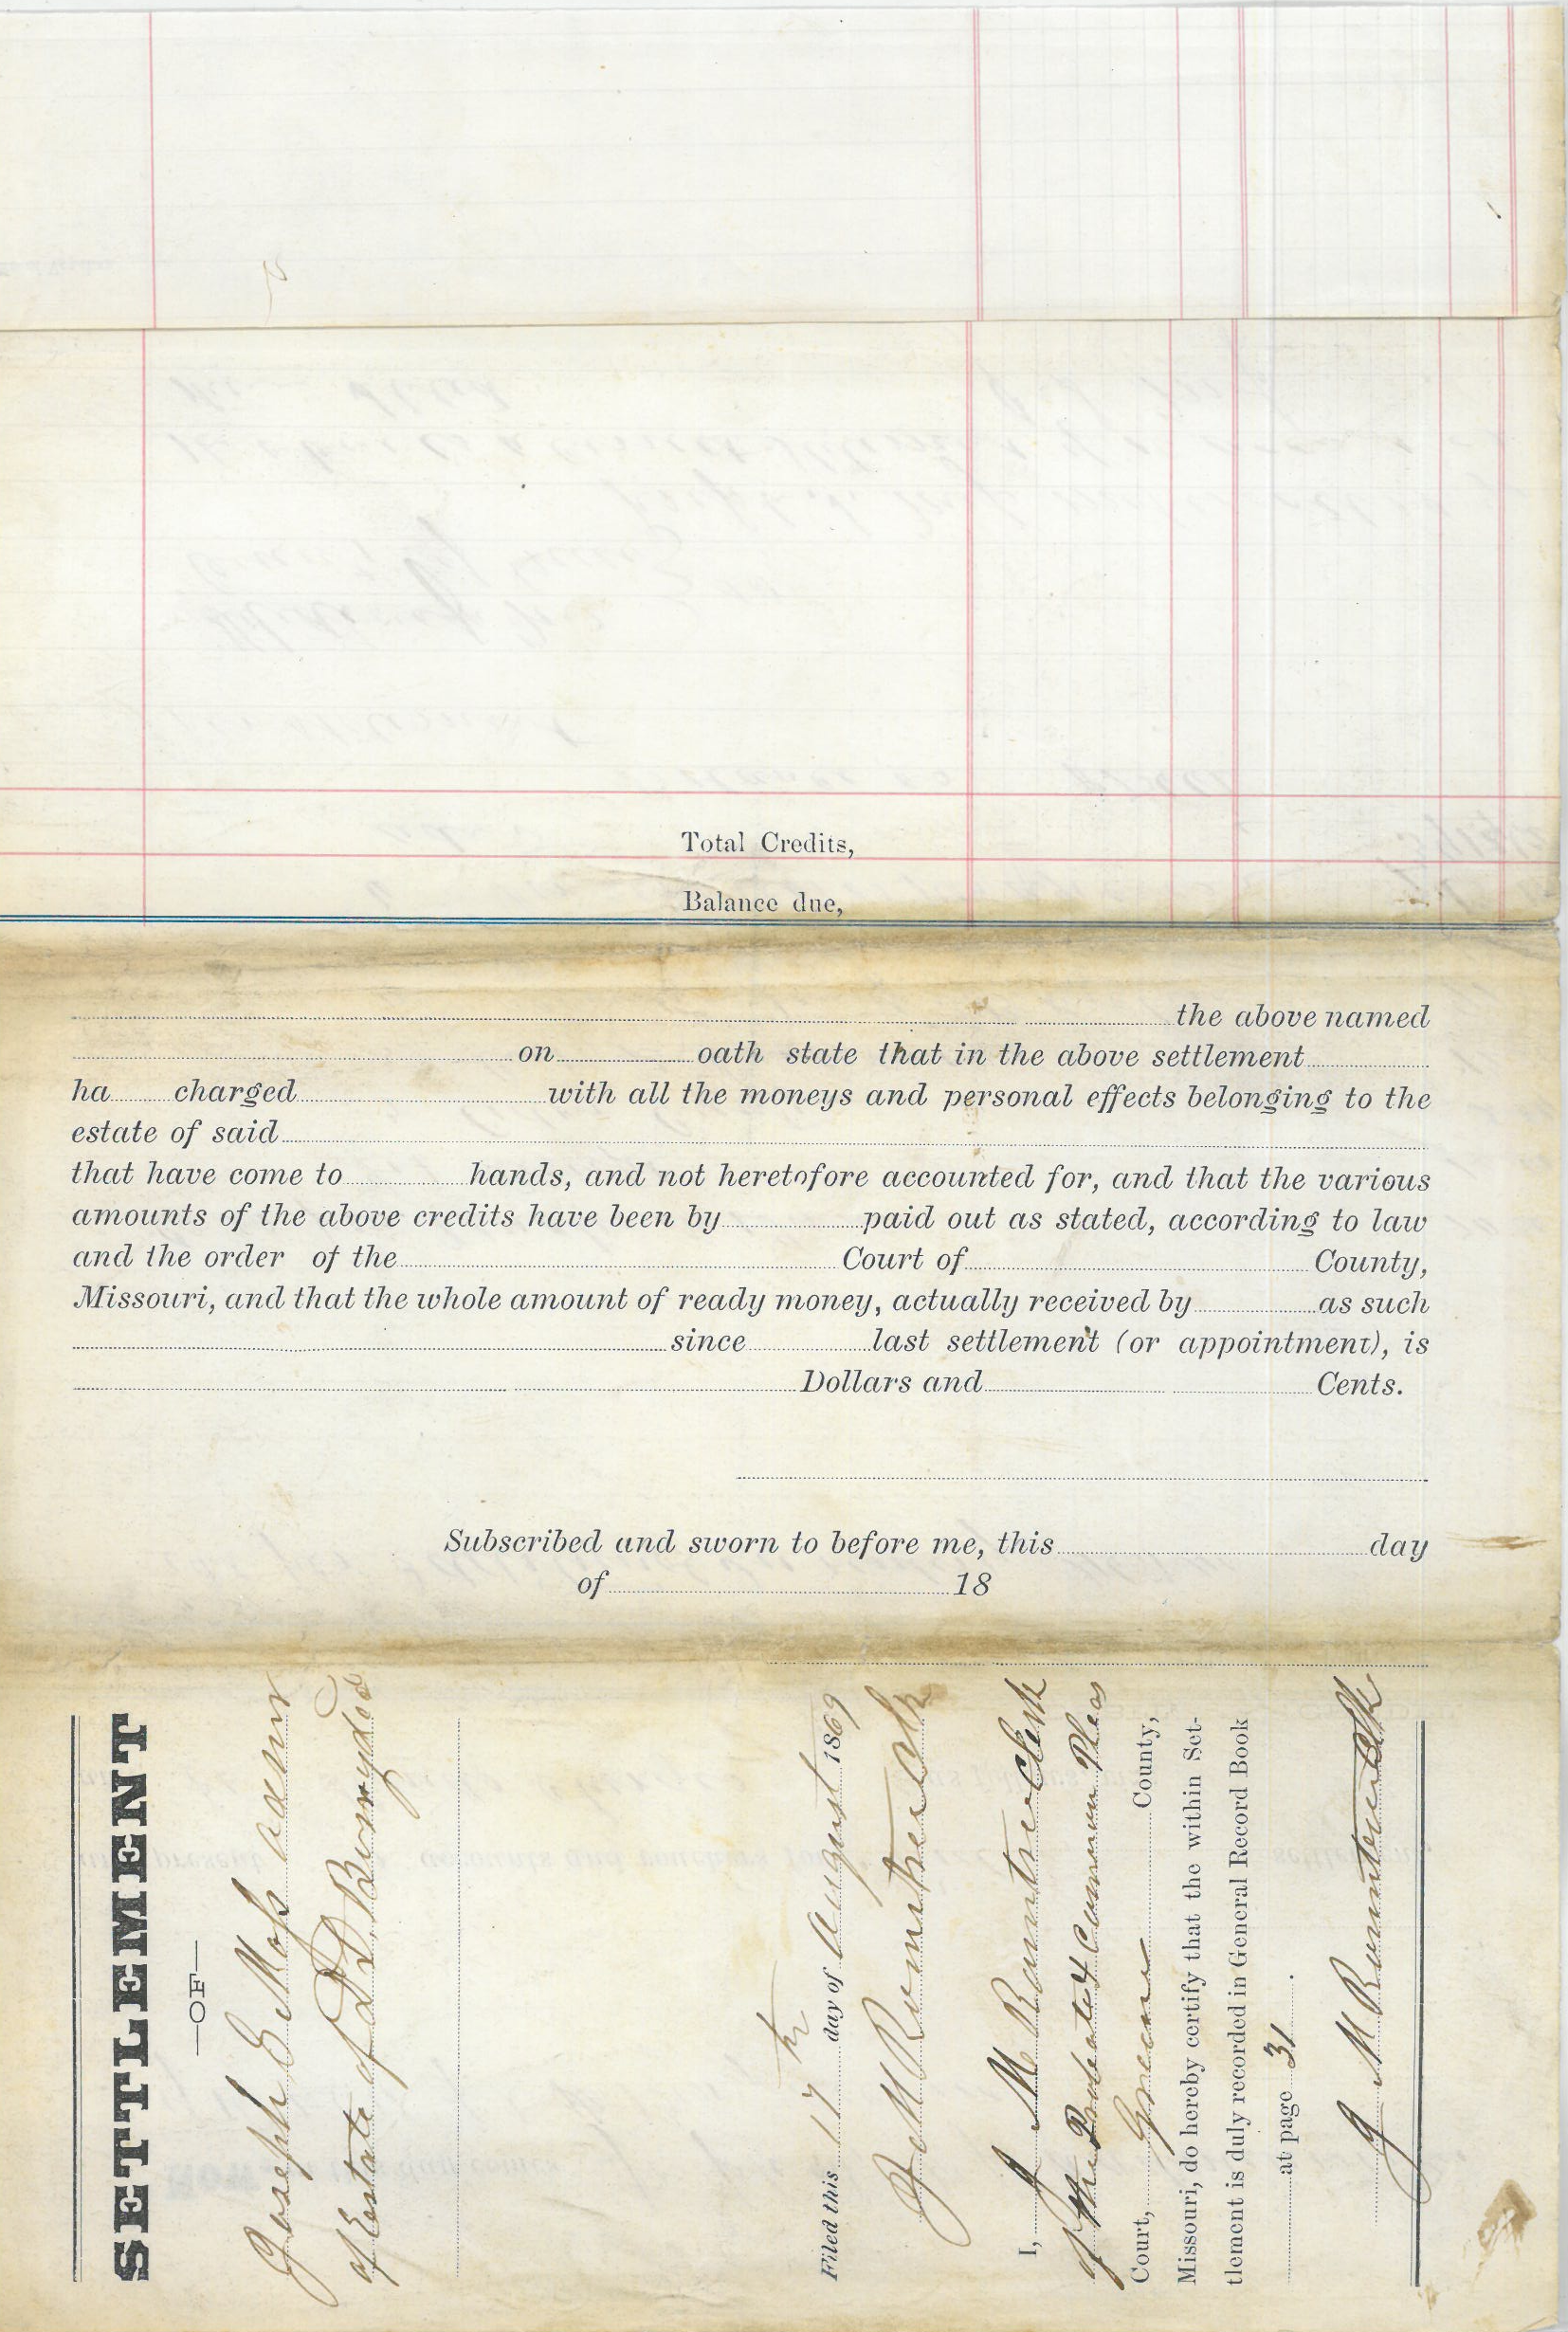 Total Credits,
Balance due,
the above named
on oath state that in the above settlement
ha charged with all the moneys and personal effects belonging to the
estate of said
that have come to hands, and not heretofore accounted for, and that the various
amounts of the above credits have been by paid out as stated, according to law
and the order of the Court of County,
Missouri, and that the whole amount of ready money, actually received by as such
since last settlement (or appointment), is
Dollars and Cents.
Subscribed and sworn to before me, this day
of 18
SETTLEMENT
—OF—
Joseph E Moss
of Estate of
Filed this 17th day of August 1869
J M Rountree Clk
I, J M Rountree Clerk
of the Probate & Common Pleas
Court, Greene County,
Missouri, do hereby certify that the within Set-
tlement is duly recorded in General Record Book
at page 31.
J M Rountree Clk